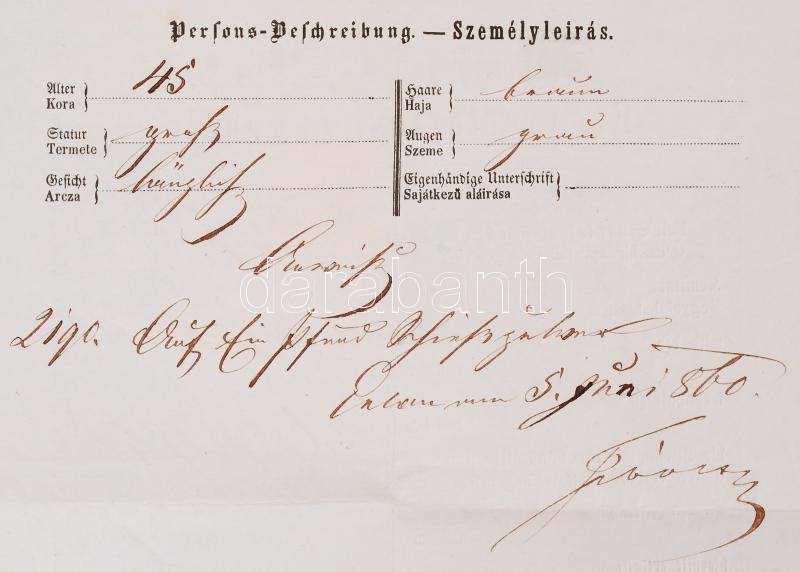 Persons-Beschreibung. — Személyleirás.
Alter
Kora
45
Haare
Haja
braun
Statur
Termete
groß
Augen
Szeme
grau
Gesicht
Arcza
länglich
Eigenhändige Unterschrift
Sajátkezű aláirása
darabanth
2190. Auf Ein Pfund Schießpulver
am 5. Juni 860.